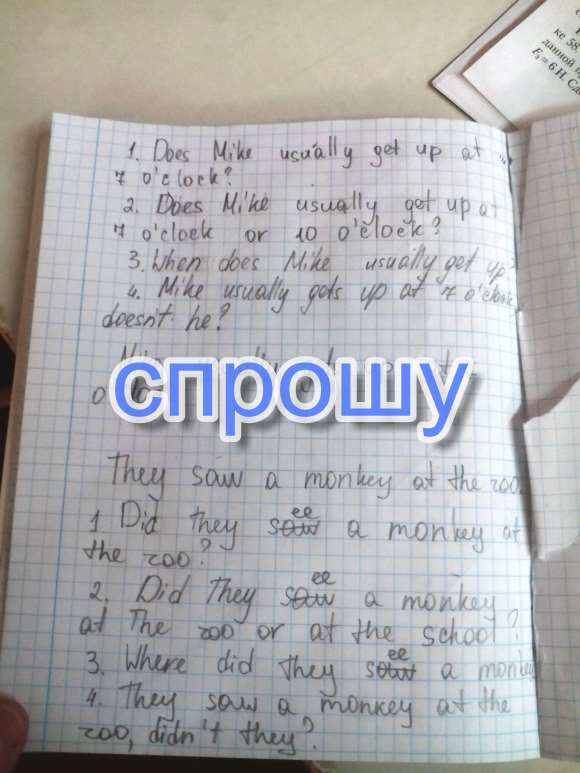 ке 58.
данной
F₃ = 6 Н. Сд
1. Does Mike usually get up at
7 o'clock?
2. Does Mike usually get up at
7 o'clock or 10 o'clock?
3. When does Mike usually get up?
4. Mike usually gets up at 7 o'clock
doesn't he?
спрошу
They saw a monkey at the zoo.
1 Did they see a monkey at
the zoo?
2. Did They see a monkey
at The zoo or at the school?
3. Where did they see a monkey
4. They saw a monkey at the
zoo, didn't they?